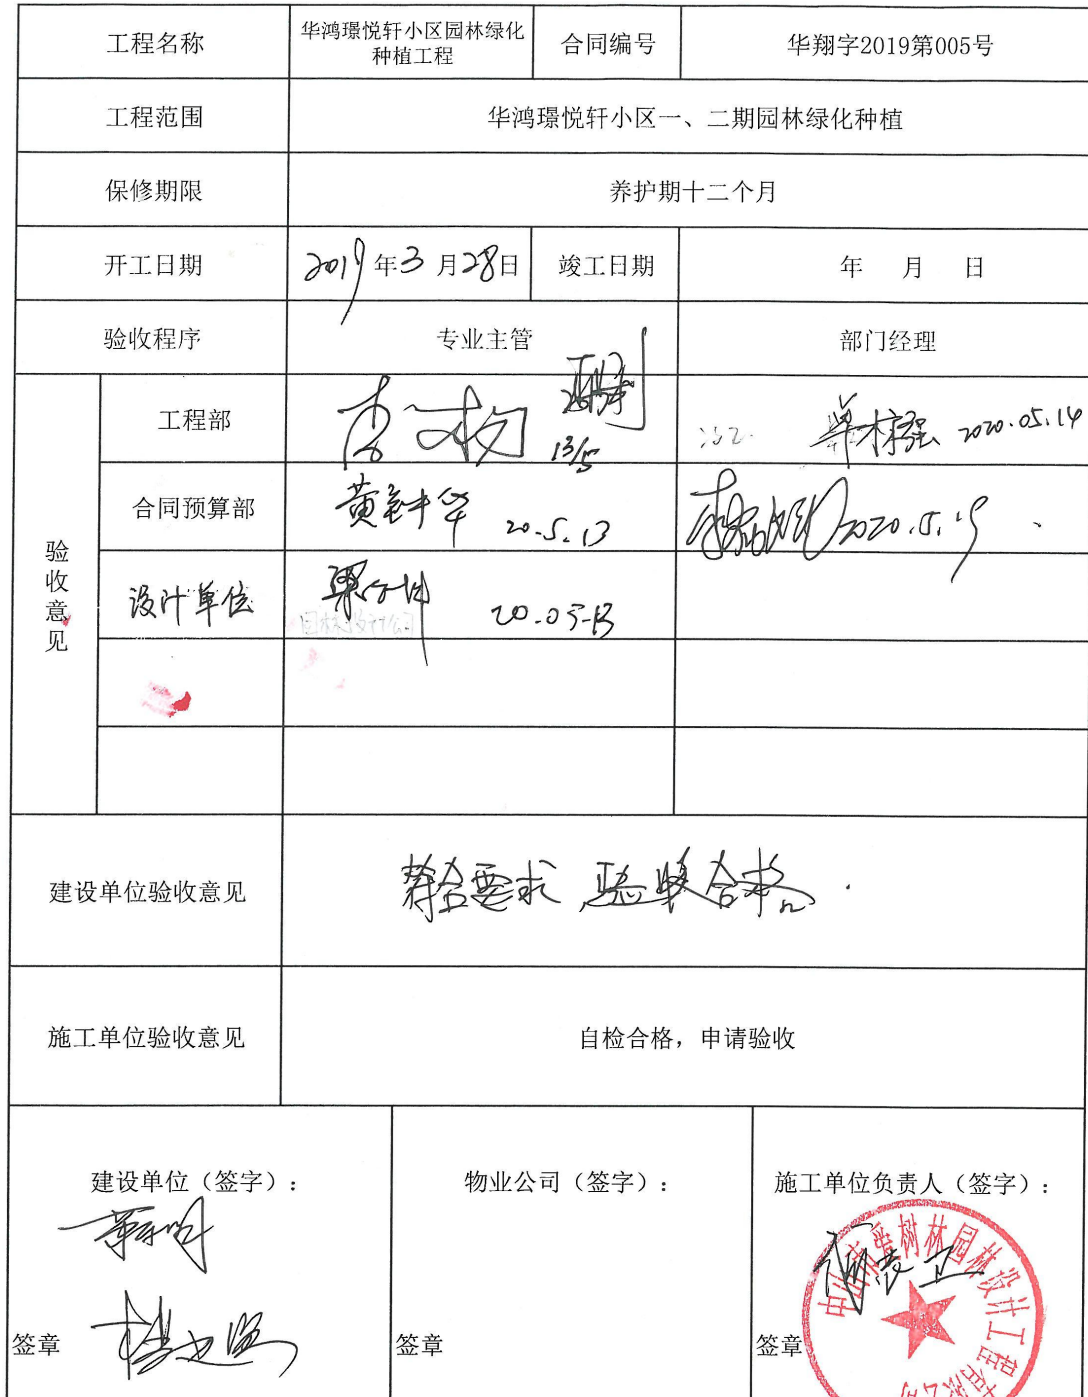 工程名称
华鸿璟悦轩小区园林绿化
种植工程
合同编号
华翔字2019第005号
工程范围
华鸿璟悦轩小区一、二期园林绿化种植
保修期限
养护期十二个月
开工日期
2019年3月28日
竣工日期
年 月 日
验收程序
专业主管
部门经理
验收意见
工程部
13/5
2020.05.14
合同预算部
20.5.13
2020.5.15
设计单位
园林设计公司
20.05-13
建设单位验收意见
符合要求 验收合格.
施工单位验收意见
自检合格，申请验收
建设单位（签字）：
物业公司（签字）：
施工单位负责人（签字）：
签章
签章
签章
中山市爱树林园林设计工程有限公司